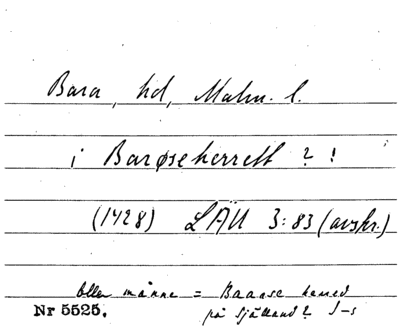 Bara, hd, Malm. l.
i Barøseherrett ? !
(1428) LÄU 3:83 (avskr.)
Eller månne = Baarse herred
Nr 5525. på Själland? J-s